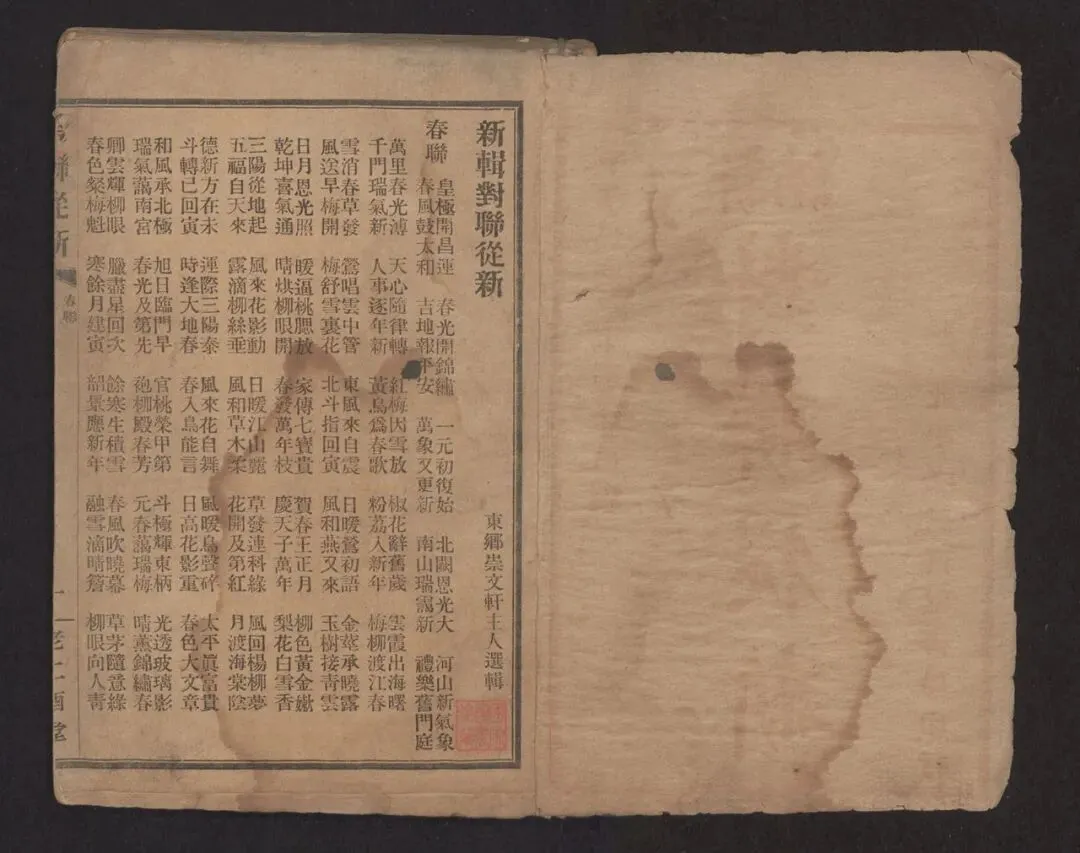 新輯對聯從新
東鄉崇文軒主人選輯
春聯
皇極開昌運 春光開錦繡 一元初復始 北闕恩光大 河山新氣象
春風鼓太和 吉地報平安 萬象又更新 南山瑞靄新 禮樂舊門庭
萬里春光溥 天心隨律轉 紅梅因雪放 椒花辭舊歲 雲霞出海曙
千門瑞氣新 人事逐年新 黃鳥爲春歌 粉荔入新年 梅柳渡江春
雪消春草發 鶯唱雲中管 東風來自震 日暖鶯初語 金莖承曉露
風送早梅開 梅舒雪裏花 北斗指回寅 風和燕又來 玉樹接靑雲
日月恩光照 暖逼桃腮放 家傳七寶貴 賀春王正月 柳色黃金嫩
乾坤喜氣通 晴烘柳眼開 春發萬年枝 慶天子萬年 梨花白雪香
三陽從地起 風來花影動 日暖江山麗 草發連科綠 風回楊柳夢
五福自天來 露滴柳絲垂 風和草木柔 花開及第紅 月渡海棠陰
德新方在未 運際三陽泰 風來花自舞 風暖鳥聲碎 太平眞富貴
斗轉已回寅 時逢大地春 春入鳥能言 日高花影重 春色大文章
和風承北極 旭日臨門早 官桃榮甲第 斗極輝東柄 光透玻璃影
瑞氣藹南宮 春光及第先 苑柳殿春芳 元春藹瑞梅 晴薰錦繡春
卿雲輝柳眼 臘盡星回次 餘寒生積雪 春風吹曉幕 草茅隨意綠
春色粲梅魁 寒餘月建寅 韶景應新年 融雪滴晴簷 柳眼向人靑
聯從新 春聯 老二酉堂